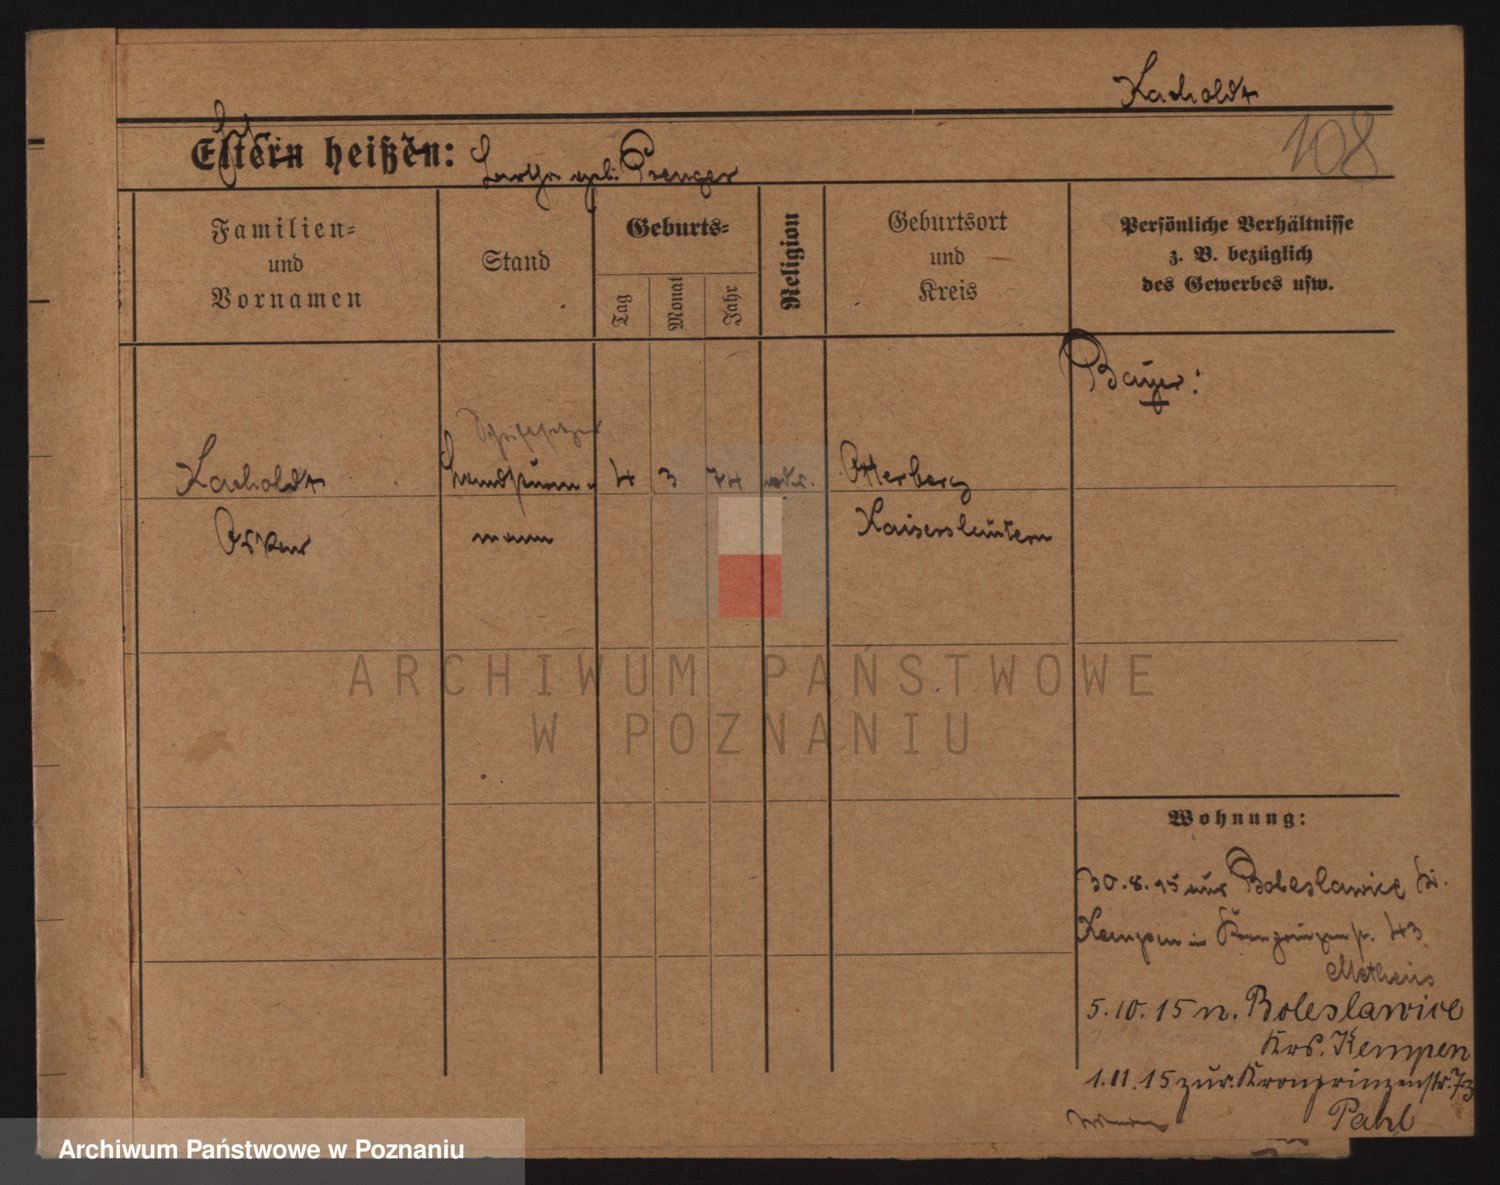 Kacholdt
108
Eltern heißen:
geb. Prenger
Familien-
und
Vornamen
Stand
Geburts-
Tag
Monat
Jahr
Religion
Geburtsort
und
Kreis
Persönliche Verhältnisse
z. B. bezüglich
des Gewerbes usw.
Bayer:
Schriftsetzer
Kacholdt
Landsturm-
4 3 74
Otterberg
Oskar
mann
Kaiserslautern
ARCHIWUM PAŃSTWOWE
W POZNANIU
Wohnung:
30.8.15 aus Boleslawice bei
Kempen in Kronprinzenstr. 43
Matheus
5.10.15 n. Boleslawice
Krs. Kempen
1.11.15 zur. Kronprinzenstr. 73
Pahl
Archiwum Państwowe w Poznaniu